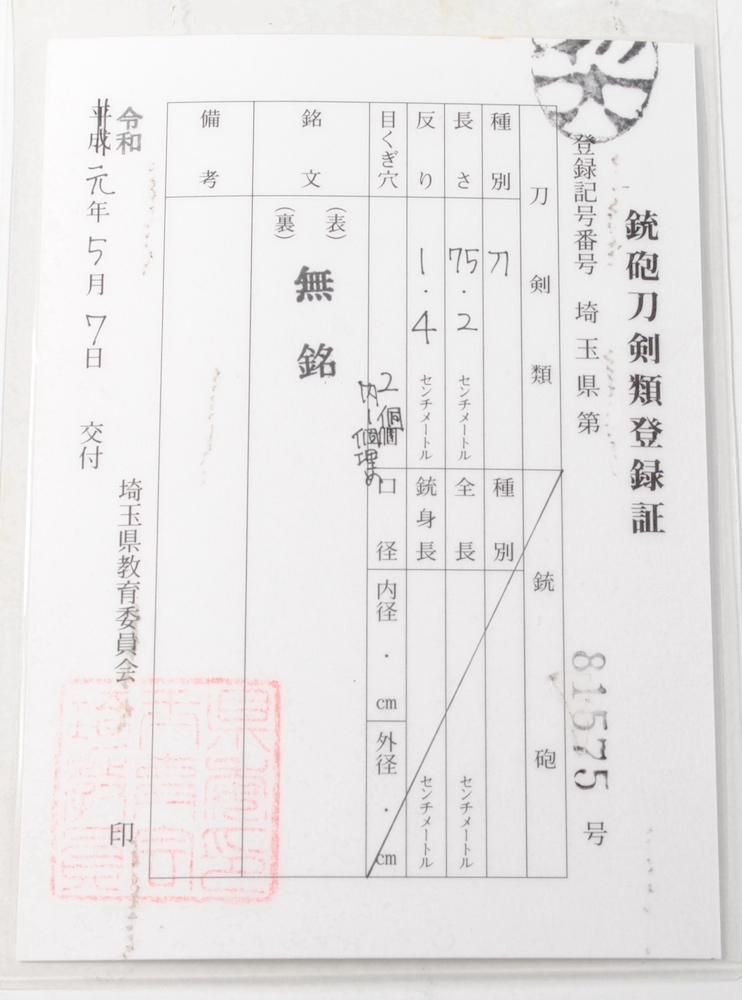 銃砲刀剣類登録証
登録記号番号 埼玉県第 81575 号
刀剣類
種別 刀
長さ 75.2 センチメートル
反り 1.4 センチメートル
目くぎ穴 2個 内1個埋め
銃砲
種別
全長 センチメートル
銃身長 センチメートル
口径 内径 ・ cm 外径 ・ cm
銘文 (表) (裏) 無銘
備考
令和
平成元年5月7日 交付
埼玉県教育委員会 印